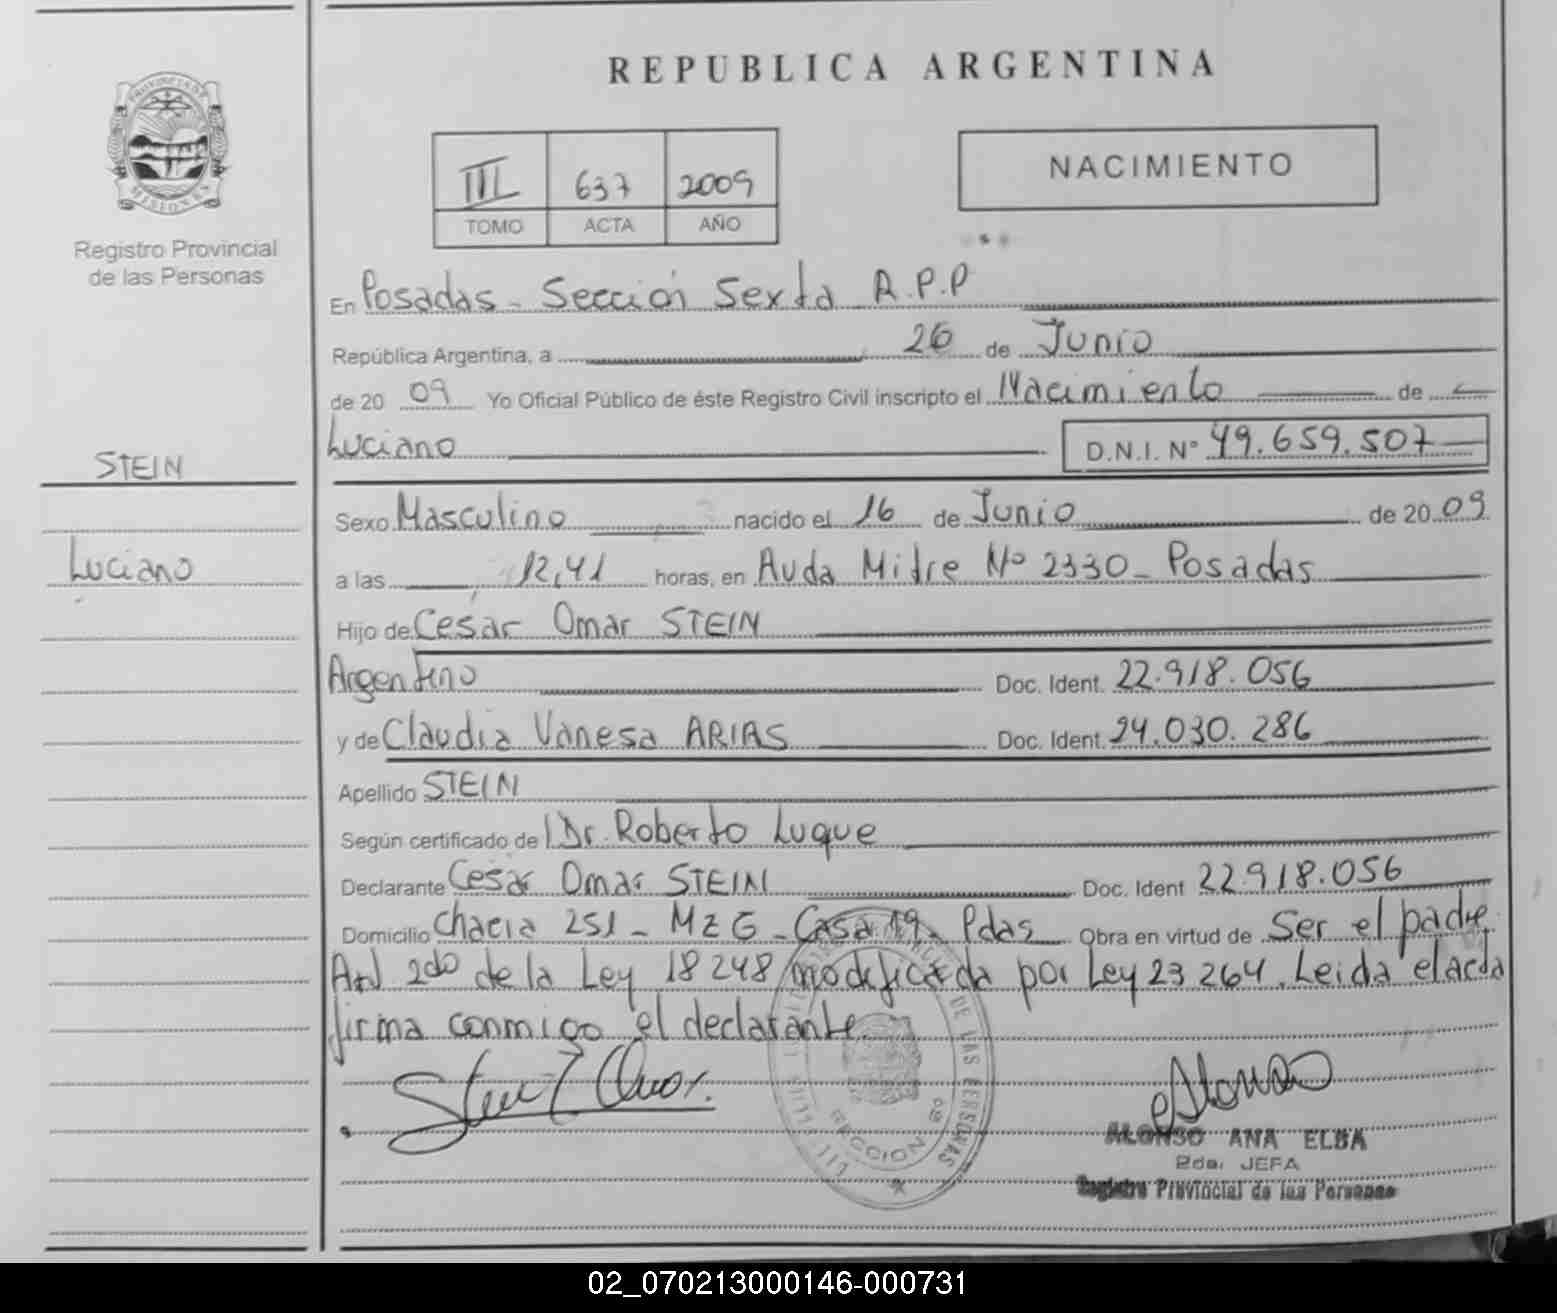 REPUBLICA ARGENTINA
PROVINCIA DE
MISIONES
Registro Provincial
de las Personas
III 637 2009
TOMO ACTA AÑO
NACIMIENTO
En Posadas - Sección Sexta A.P.P
República Argentina, a 26 de Junio
de 20 09 Yo Oficial Público de éste Registro Civil inscripto el Nacimiento de
Luciano D.N.I. Nº 49.659.507
STEIN
Sexo Masculino nacido el 16 de Junio de 20 09
Luciano
a las 12,41 horas, en Avda Mitre Nº 2330 - Posadas
Hijo de Cesar Omar STEIN
Argentino Doc. Ident. 22.918.056
y de Claudia Vanesa ARIAS Doc. Ident. 24.030.286
Apellido STEIN
Según certificado de Dr. Roberto Luque
Declarante Cesar Omar STEIN Doc. Ident 22.918.056
Domicilio Chacra 251 - Mz G - Casa 19 - Pdas Obra en virtud de Ser el padre.
Art 2do de la Ley 18248 modificada por Ley 23264. Leida el acta
firma conmigo el declarante
DE LAS PERSONAS
SECCION 6a
ALONSO ANA ELBA
2da. JEFA
Registro Provincial de las Personas
02_070213000146-000731